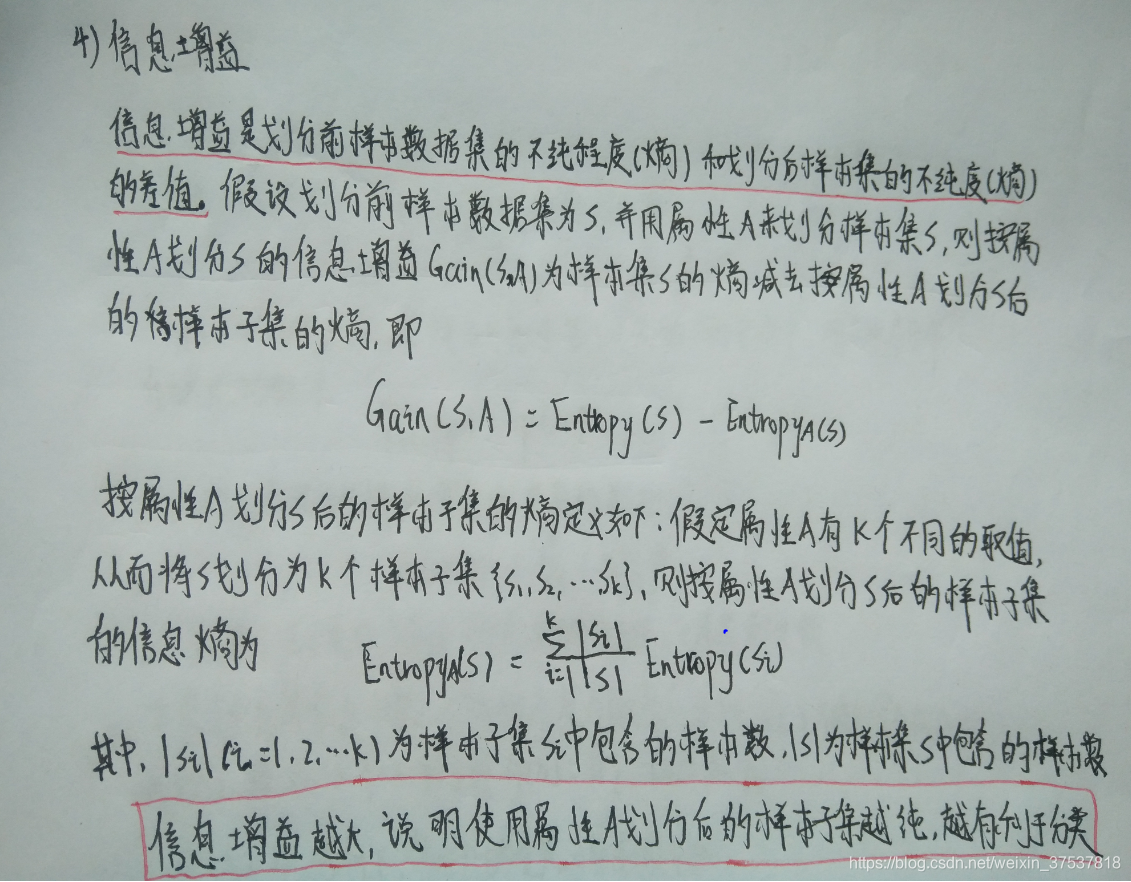 4) 信息增益
信息增益是划分前样本数据集的不纯程度(熵)和划分后样本集的不纯度(熵)
的差值。假设划分前样本数据集为S,并用属性A来划分样本集S,则按属
性A划分S的信息增益Gain(S,A)为样本集S的熵减去按属性A划分S后
的样本子集的熵,即
Gain(S,A) = Entropy(S) - EntropyA(S)
按属性A划分S后的样本子集的熵定义如下:假定属性A有K个不同的取值,
从而将S划分为K个样本子集{S1,S2,…Sk},则按属性A划分S后的样本子集
的信息熵为 EntropyA(S) = ∑_{i=1}^{k} |Si|/|S| Entropy(Si)
其中,|Si|(i=1,2,…k)为样本子集Si中包含的样本数,|S|为样本集S中包含的样本数
信息增益越大,说明使用属性A划分后的样本子集越纯,越有利于分类
https://blog.csdn.net/weixin_37537818